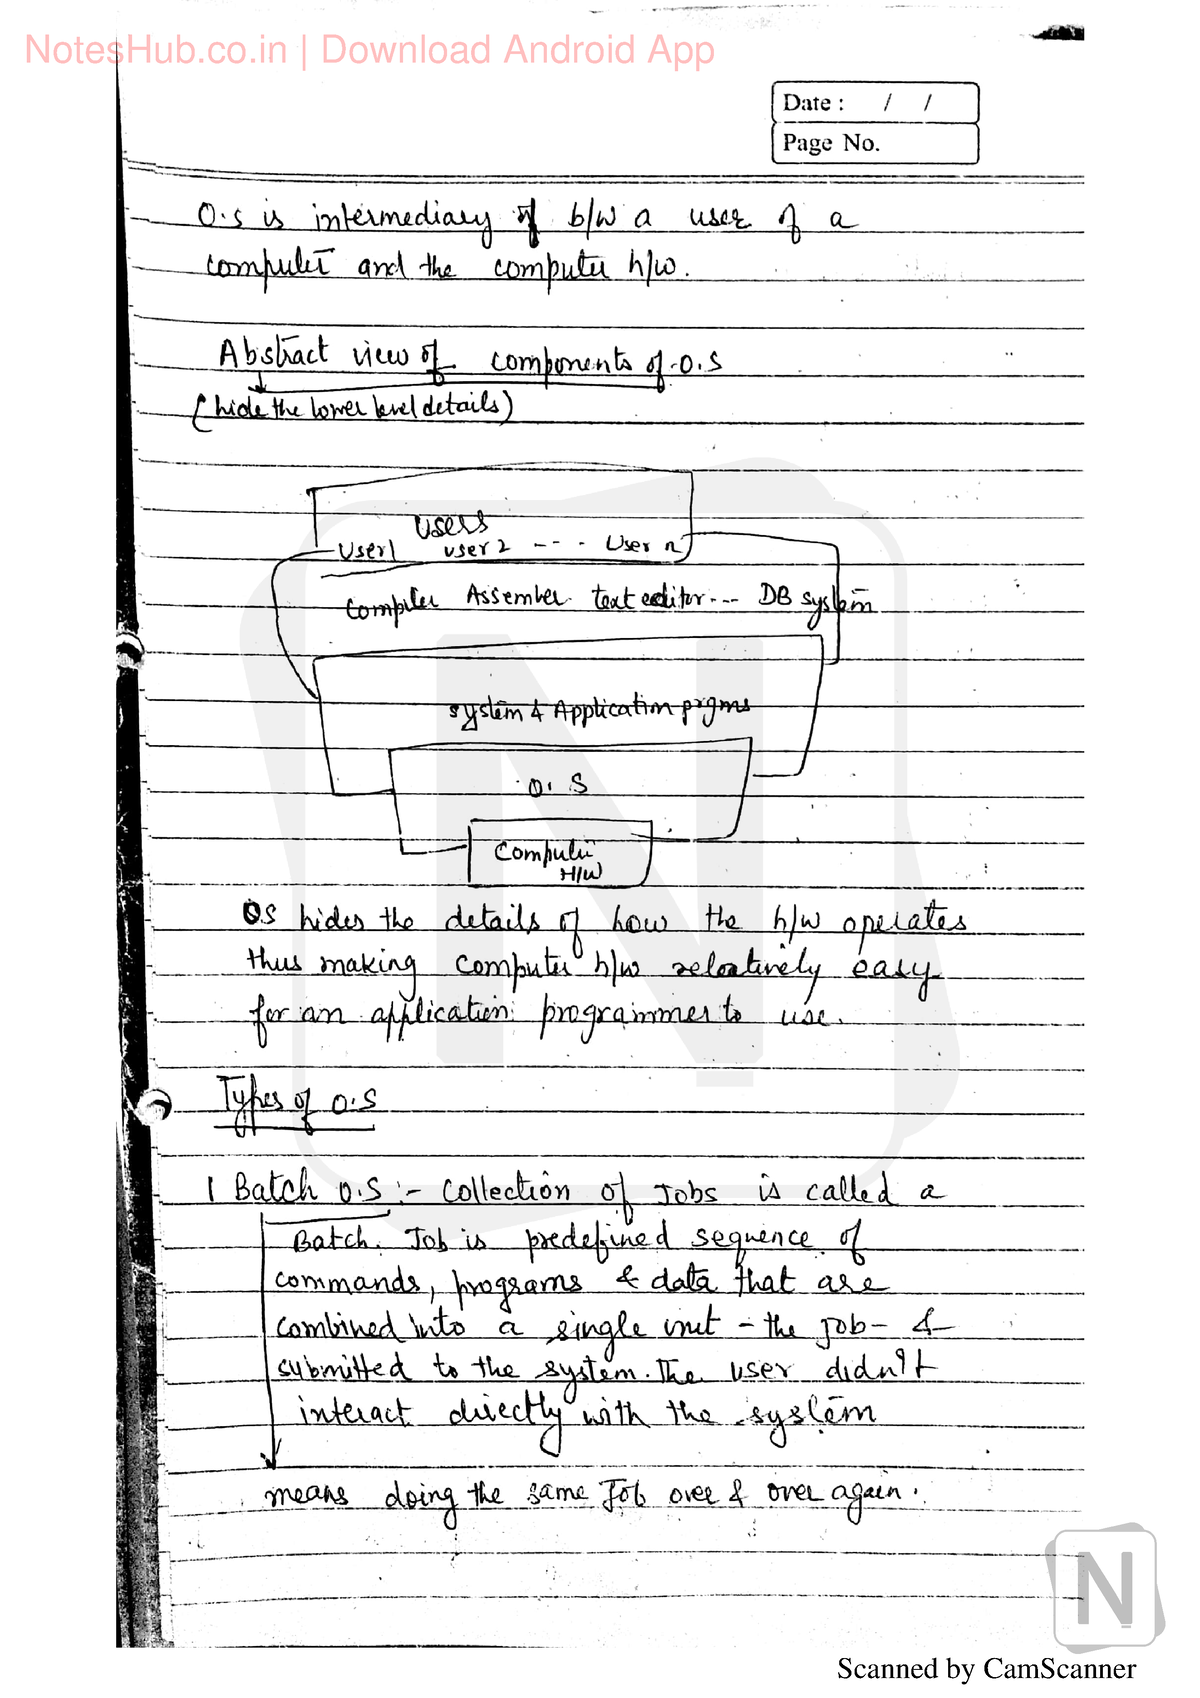 NotesHub.co.in | Download Android App
Date : / /
Page No.
O.S is intermediary of b/w a user of a
computer and the computer h/w.
Abstract view of components of O.S
(hide the lower level details)
Users
User1 user 2 --- User n
Compiler Assember text editor --- DB system
system & Application prgms
O.S
Computer
H/W
OS hides the details of how the h/w operates
thus making computer h/w relatively easy
for an application programmer to use.
Types of O.S
1 Batch O.S :- Collection of Jobs is called a
Batch. Job is predefined sequence of
commands, programs & data that are
combined into a single unit - the job - &
submitted to the system. The user didn't
interact directly with the system
means doing the same Job over & over again.
N
Scanned by CamScanner